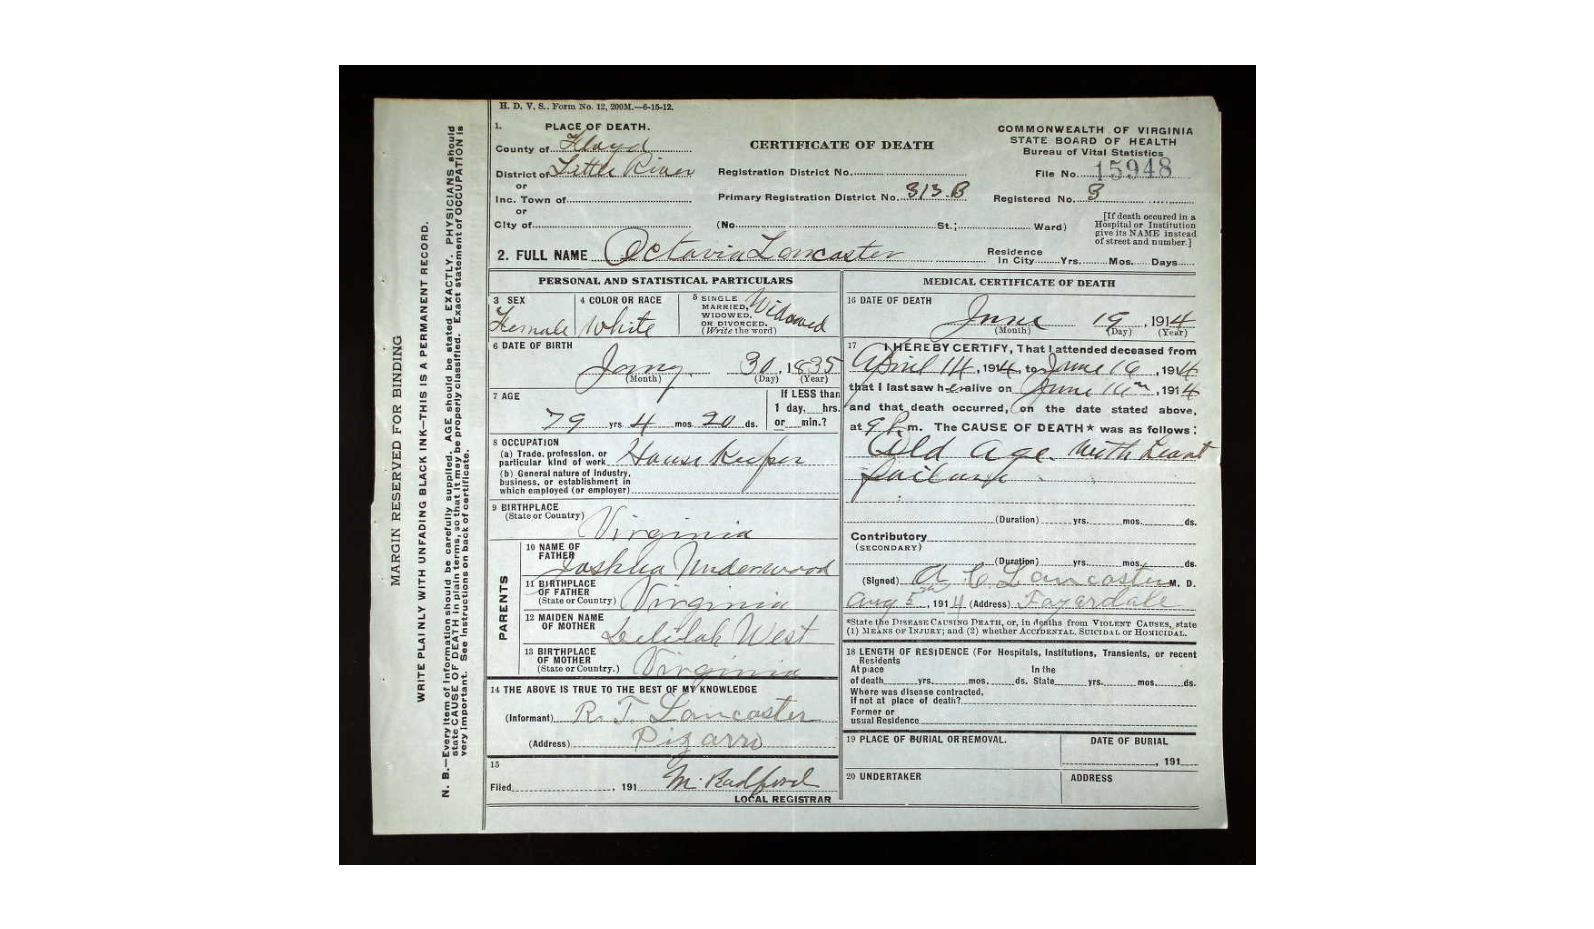 H. D. V. S.. Form No. 12, 200M.—6-15-12.
1. PLACE OF DEATH.
County of Floyd
District of Little River
or
Inc. Town of
or
City of
CERTIFICATE OF DEATH
Registration District No.
Primary Registration District No. 313 B
(No. St.; Ward)
COMMONWEALTH OF VIRGINIA
STATE BOARD OF HEALTH
Bureau of Vital Statistics
File No. 15948
Registered No. 3
[If death occured in a
Hospital or Institution
give its NAME instead
of street and number.]
2. FULL NAME Octavia Lancaster
Residence
In City Yrs. Mos. Days
PERSONAL AND STATISTICAL PARTICULARS
3 SEX
Female
4 COLOR OR RACE
White
5 SINGLE
MARRIED,
WIDOWED,
OR DIVORCED.
(Write the word)
Widowed
6 DATE OF BIRTH
Jany 30, 1835
(Month) (Day) (Year)
7 AGE
79 yrs 4 mos 20 ds.
If LESS than
1 day, hrs.
or min.?
8 OCCUPATION
(a) Trade, profession, or
particular kind of work House Keeper
(b) General nature of industry,
business, or establishment in
which employed (or employer)
9 BIRTHPLACE
(State or Country)
Virginia
PARENTS
10 NAME OF
FATHER
Joshua Underwood
11 BIRTHPLACE
OF FATHER
(State or Country) Virginia
12 MAIDEN NAME
OF MOTHER
Delilah West
13 BIRTHPLACE
OF MOTHER
(State or Country.) Virginia
14 THE ABOVE IS TRUE TO THE BEST OF MY KNOWLEDGE
(Informant) R. T. Lancaster
(Address) Pizarro
15
Filed , 191 M. Radford
LOCAL REGISTRAR
MEDICAL CERTIFICATE OF DEATH
16 DATE OF DEATH
June 19, 1914
(Month) (Day) (Year)
17 I HEREBY CERTIFY, That I attended deceased from
April 14, 1914, to June 16, 1914
that I last saw her alive on June 16th, 1914
and that death occurred, on the date stated above,
at 9 P. m. The CAUSE OF DEATH* was as follows:
Old age with heart
failure
(Duration) yrs. mos. ds.
Contributory
(SECONDARY)
(Duration) yrs. mos. ds.
(Signed) A C Lancaster M. D.
Aug 5th, 1914 (Address) Fayerdale
*State the DISEASE CAUSING DEATH, or, in deaths from VIOLENT CAUSES, state
(1) MEANS OF INJURY; and (2) whether ACCIDENTAL, SUICIDAL or HOMICIDAL.
18 LENGTH OF RESIDENCE (For Hospitals, Institutions, Transients, or recent
Residents
At place In the
of death yrs. mos. ds. State yrs. mos. ds.
Where was disease contracted,
if not at place of death?
Former or
usual Residence
19 PLACE OF BURIAL OR REMOVAL.
DATE OF BURIAL
, 191
20 UNDERTAKER
ADDRESS
MARGIN RESERVED FOR BINDING
WRITE PLAINLY WITH UNFADING BLACK INK—THIS IS A PERMANENT RECORD.
N. B.—Every item of information should be carefully supplied. AGE should be stated EXACTLY. PHYSICIANS should
state CAUSE OF DEATH in plain terms, so that it may be properly classified. Exact statement of OCCUPATION is
very important. See instructions on back of certificate.